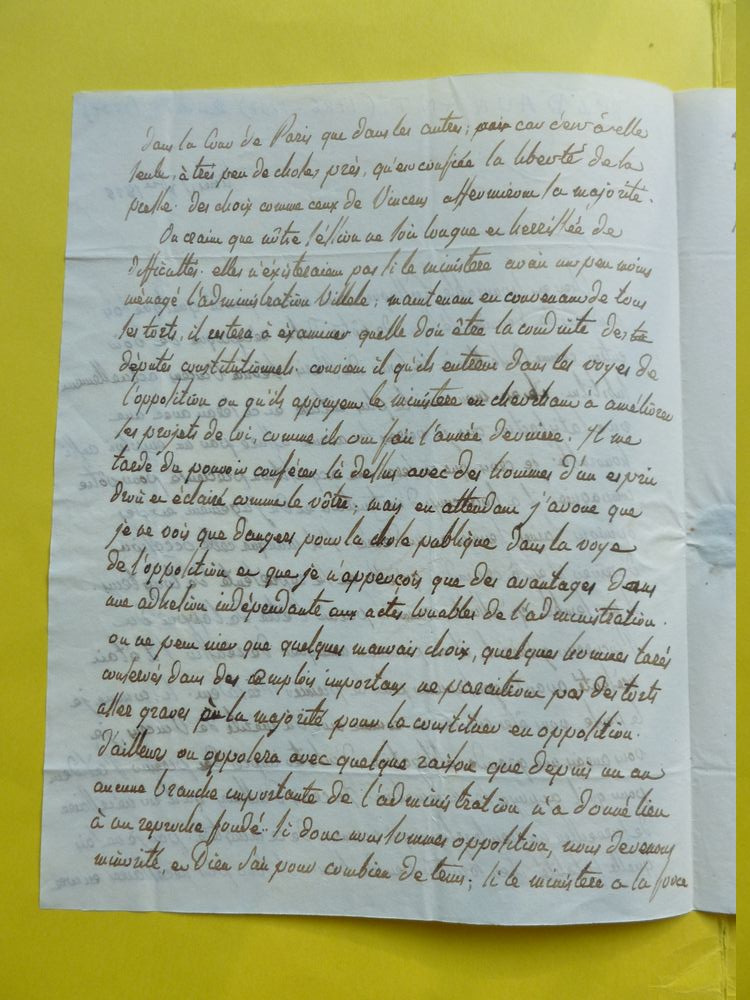 dans la Cour de Paris que dans les autres; car c'est à elle
seule, à très peu de choses près, qu'est confiée la liberté de la
presse. des choix comme ceux de Vincens affermiront la majorité.
On craint que nôtre session ne soit longue et herrissée de
difficultés. elles n'éxisteraient pas si le ministere avait un peu moins
ménagé l'administration Villele; maintenant en convenant de tous
ses torts, il restera à éxaminer quelle doit être la conduite des
députés constitutionnels. convient il qu'ils entrent dans les voyes de
l'opposition ou qu'ils appuyent le ministere en cherchant à améliorer
ses projets de loi, comme ils ont fait l'année derniere. Il me
tarde de pouvoir conférer là dessus avec des hommes d'un esprit
droit et éclairé comme le vôtre; mais en attendant j'avoue que
je ne vois que dangers pour la chose publique dans la voye
de l'opposition et que je n'apperçois que des avantages dans
une adhesion indépendante aux actes louables de l'administration.
on ne peut nier que quelques mauvais choix, quelques hommes tarés
conservés dans des emplois importans ne paraitront pas des torts
assez graves à la majorité pour la constituer en opposition.
d'ailleurs on opposera avec quelque raison que depuis un an
aucune branche importante de l'administration n'a donné lieu
à un reproche fondé. si donc nous sommes opposition, nous devenons
minorité, et Dieu sait pour combien de tems; si le ministere a la force